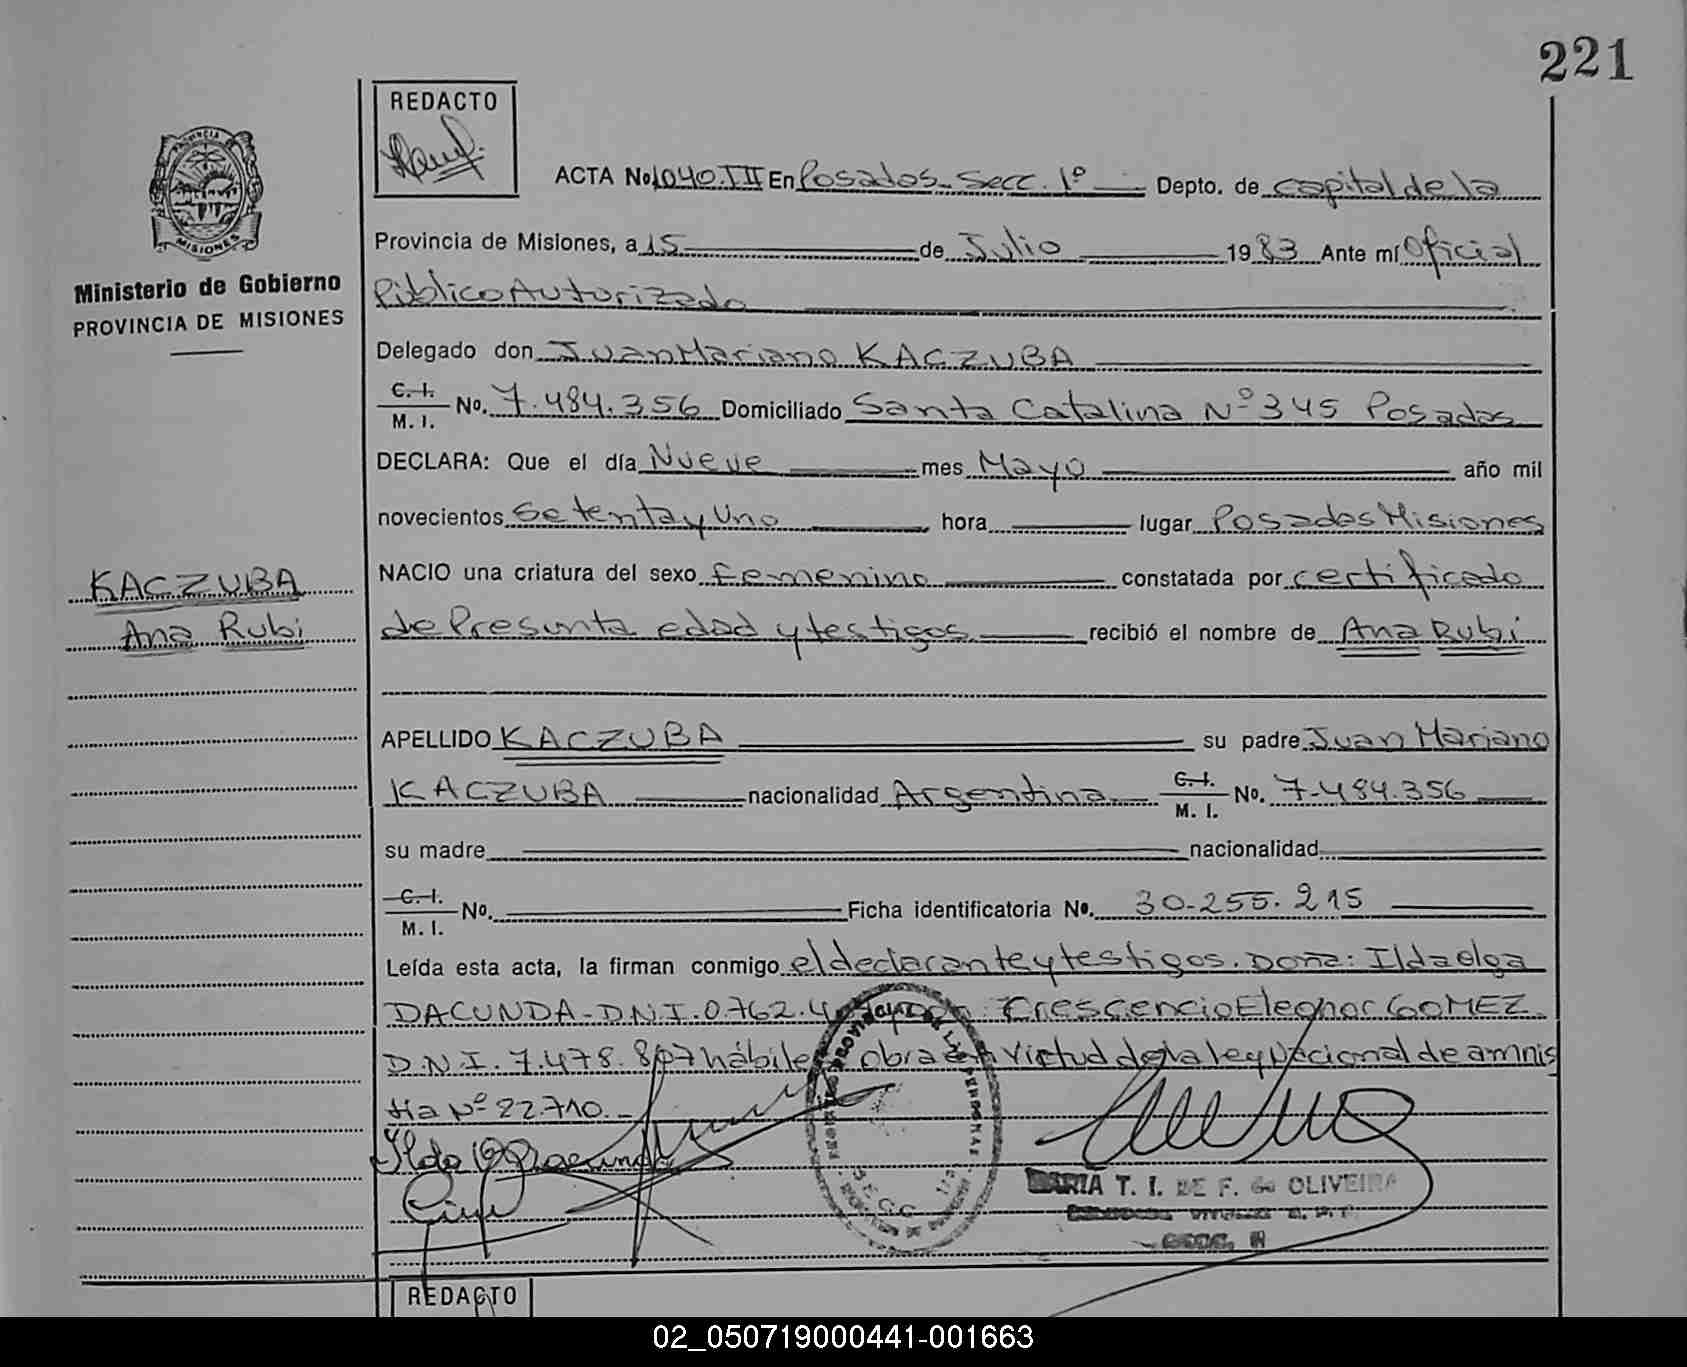 221
REDACTO
ACTA No 1040.III En Posadas-Secc. 1º Depto. de capital de la
PROVINCIA
MISIONES
Provincia de Misiones, a 15 de Julio 1983 Ante mí Oficial
Ministerio de Gobierno
PROVINCIA DE MISIONES
Público Autorizado
Delegado don Juan Mariano KACZUBA
C. I. M. I. No. 7.484.356 Domiciliado Santa Catalina Nº 345 Posadas
DECLARA: Que el día Nueve mes Mayo año mil
novecientos Setenta y Uno hora lugar Posadas Misiones
KACZUBA
NACIO una criatura del sexo femenino constatada por certificado
Ana Rubi
de Presunta edad y testigos recibió el nombre de Ana Rubi
APELLIDO KACZUBA su padre Juan Mariano
KACZUBA nacionalidad Argentina C. I. M. I. No. 7.484.356
su madre nacionalidad
C. I. M. I. No. Ficha identificatoria No. 30.255.215
Leída esta acta, la firman conmigo el declarante y testigos. Doña: Ilda Olga
DACUNDA-D.N.I. 0.762. Crescencio Eleonor GOMEZ
D.N.I. 7.478.807 hábiles obra en virtud de la ley Nacional de amnis
tia Nº 22.710.-
MARIA T. I. DE F. de OLIVEIRA
REDACTO
02_050719000441-001663